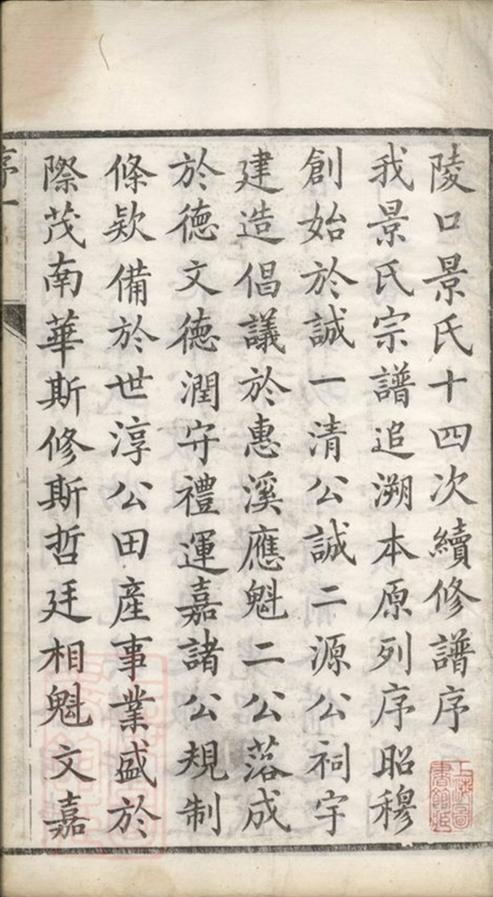 陵口景氏十四次續修譜序
我景氏宗譜追溯本原列序昭穆
創始於誠一清公誠二源公祠宇
建造倡議於惠溪應魁二公落成
於德文德潤守禮運嘉諸公規制
條欵備於世淳公田產事業盛於
際茂南華斯修斯哲廷相魁文嘉
序一